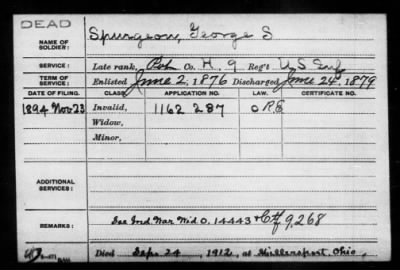 DEAD
NAME OF SOLDIER: Spurgeon, George S
SERVICE: Late rank, Pvt Co. H. 9 Reg't U S Inf
TERM OF SERVICE: Enlisted June 2, 1876 Discharged June 24, 1879
DATE OF FILING. CLASS. APPLICATION NO. LAW. CERTIFICATE NO.
1894 Nov 23 Invalid, 1162 287 O R G
Widow,
Minor,
ADDITIONAL SERVICES:
REMARKS: See Ind War Wid O. 14443 + Ctf 9,268
Died Sep. 24, 1912, at Millersport Ohio,